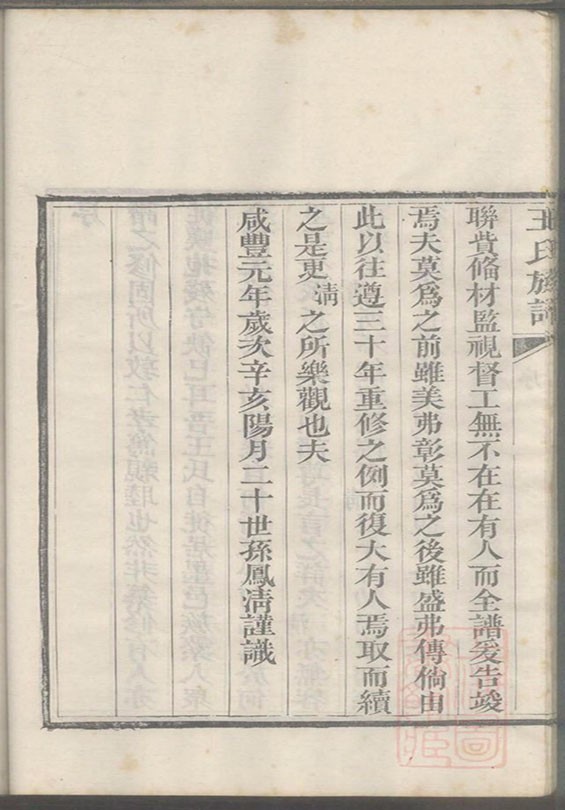 王氏族譜
聯費脩材監視督工無不在在有人而全譜爰告竣
焉夫莫爲之前雖美弗彰莫爲之後雖盛弗傳倘由
此以往遵三十年重修之例而復大有人焉取而續
之是更清之所樂觀也夫
咸豐元年歲次辛亥陽月二十世孫鳳清謹識